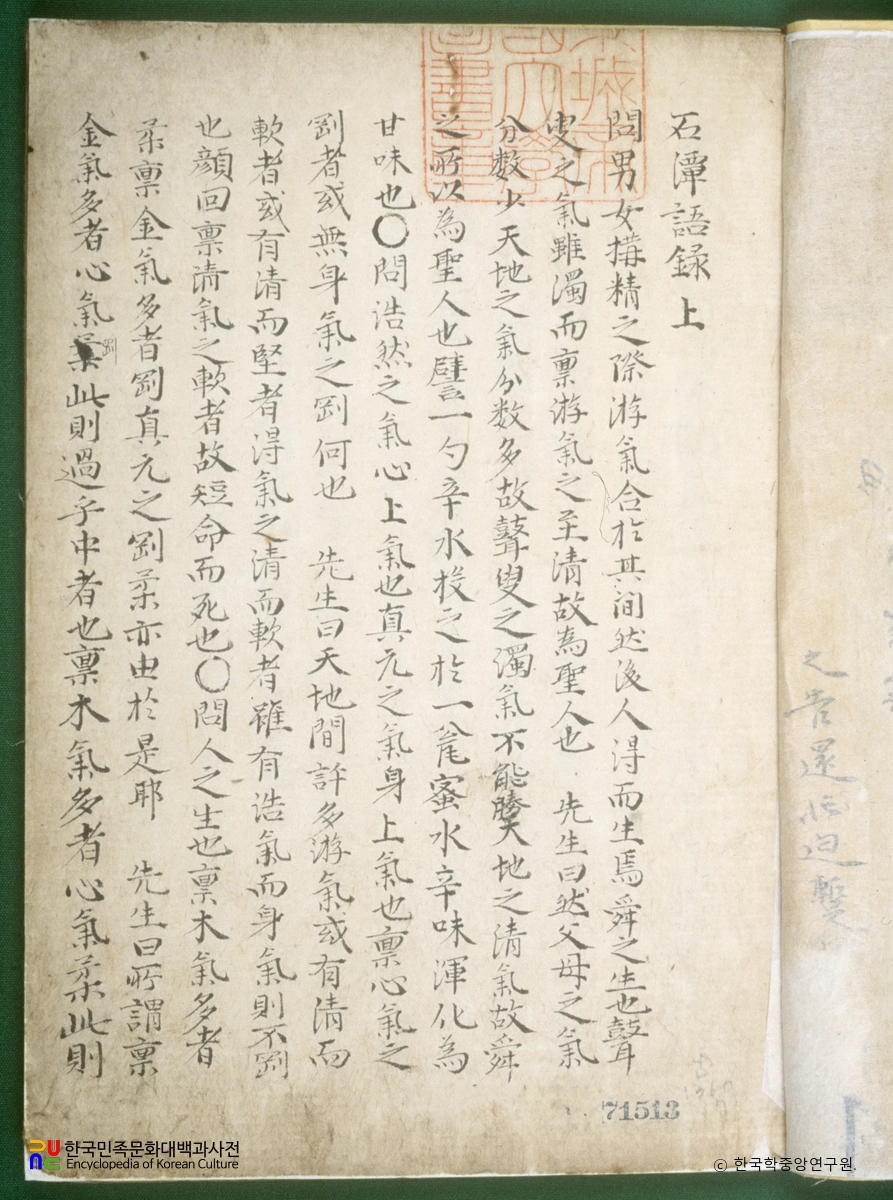 石潭語録上
問男女搆精之際游氣合於其間然後人得而生焉舜之生也瞽
叟之氣雖濁而禀游氣之至清故為聖人也 先生曰然父母之氣
分数少天地之氣分数多故瞽叟之濁氣不能勝天地之清氣故舜
之所以為聖人也譬一勺辛水投之於一瓮蜜水辛味渾化為
甘味也〇問浩然之氣心上氣也真元之氣身上氣也禀心氣之
剛者或無身氣之剛何也 先生曰天地間許多游氣或有清而
軟者或有清而堅者得氣之清而軟者雖有浩氣而身氣則不剛
也顔回禀清氣之軟者故短命而死也〇問人之生也禀木氣多者
柔禀金氣多者剛真元之剛柔亦由於是耶 先生曰所謂禀
金氣多者心氣剛此則過乎中者也禀木氣多者心氣柔此則
71513
한국민족문화대백과사전
Encyclopedia of Korean Culture
© 한국학중앙연구원.